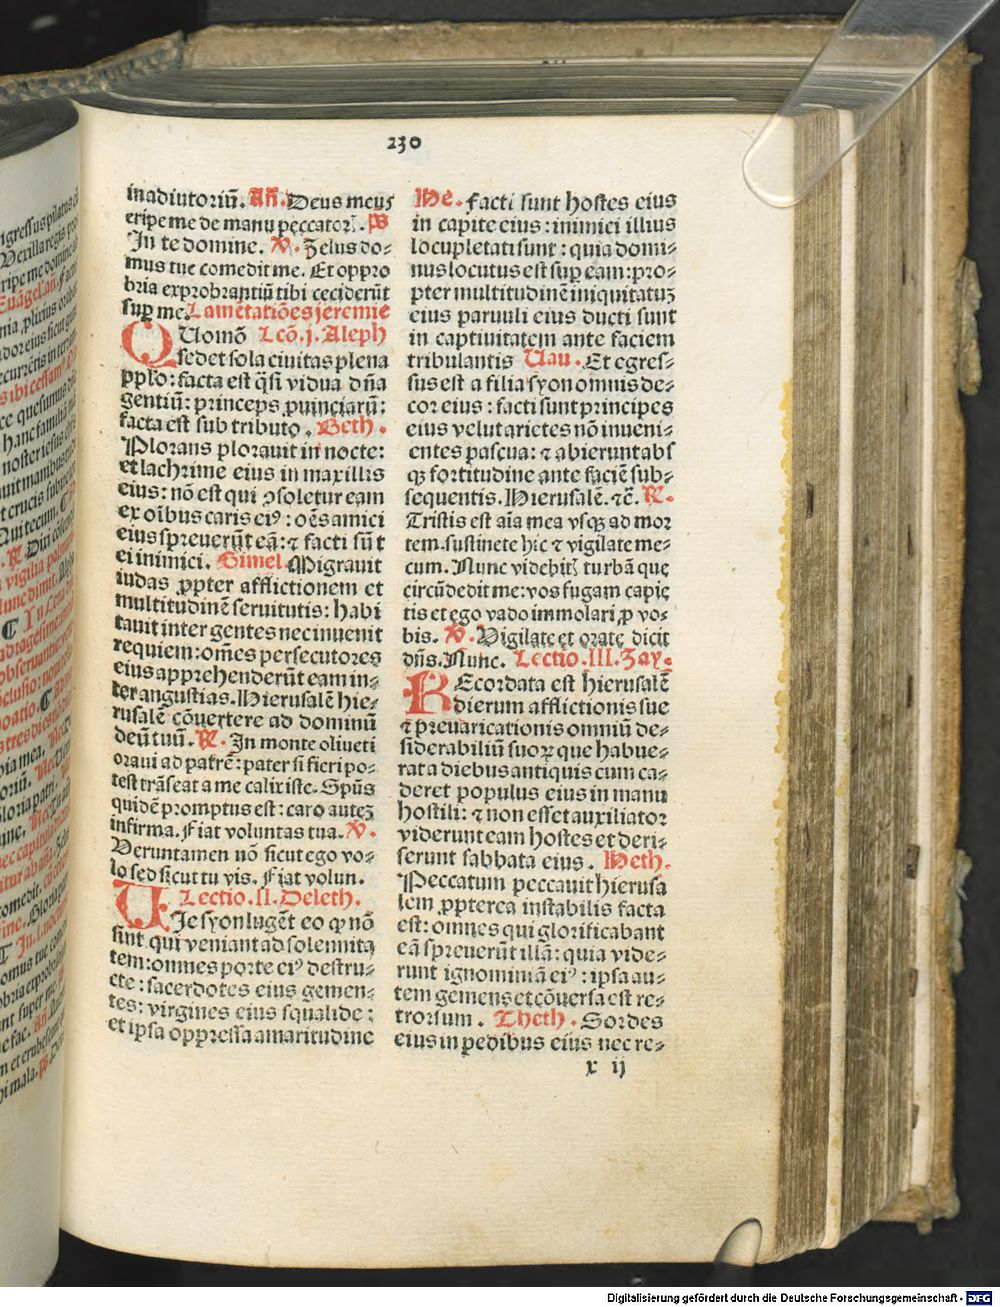 230
in adiutoriū. Añ. Deus meus
eripe me de manu peccatoꝝ. P̄s
In te domine. ℣. Zelus do⸗
mus tue comedit me. Et oppro
bria exprobrantiū tibi ceciderūt
sup me. Lamētatiōes jeremie
QUomō Lcō. j. Aleph
sedet sola ciuitas plena
pplo: facta est q̄si vidua dn̄a
gentiū: princeps ꝓuinciarū:
facta est sub tributo. Beth.
Plorans plorauit in nocte:
et lachrime eius in maxillis
eius: nō est qui ꝯsoletur eam
ex oībus caris eiꝰ: oēs amici
eius spreuerūt eā: ⁊ facti sūt
ei inimici. Gimel Migrauit
iudas ꝓpter afflictionem et
multitudinē seruitutis: habi
tauit inter gentes nec inuenit
requiem: om̄es persecutores
eius apprehenderūt eam in⸗
ter angustias. Hierusalē hie⸗
rusalē cōuertere ad dominū
deū tuū. ℟. In monte oliueti
oraui ad patrē: pater si fieri po⸗
test trāseat a me calix iste. Spūs
quidē promptus est: caro auteꝫ
infirma. Fiat voluntas tua. ℣.
Veruntamen nō sicut ego vo⸗
lo sed sicut tu vis. Fiat volun.
Lectio. II. Deleth.
UIe syon lugēt eo ꝙ nō
sint qui veniant ad solennita
tem: omnes porte eiꝰ destru⸗
cte: sacerdotes eius gemen⸗
tes: virgines eius squalide:
et ipsa oppressa amaritudine
He. Facti sunt hostes eius
in capite eius: inimici illius
locupletati sunt: quia domi⸗
nus locutus est sup eam: pro⸗
pter multitudinē iniquitatuꝫ
eius paruuli eius ducti sunt
in captiuitatem ante faciem
tribulantis Uau. Et egres⸗
sus est a filia syon omnis de⸗
cor eius: facti sunt principes
eius velut arietes nō inueni⸗
entes pascua: ⁊ abierunt abs
qꝫ fortitudine ante faciē sub⸗
sequentis. Hierusalē. ⁊c̄. ℟.
Tristis est aīa mea vsqꝫ ad mor
tem. sustinete hic ⁊ vigilate me⸗
cum. Nunc videbitꝭ turbā que
circūdedit me: vos fugam capie
tis et ego vado immolari ꝓ vo⸗
bis. ℣. Vigilate et orate dicit
dn̄s. Nunc. Lectio. III. Zay.
REcordata est hierusalē
dierum afflictionis sue
⁊ preuaricationis omniū de⸗
siderabiliū suoꝝ que habue⸗
rat a diebus antiquis cum ca⸗
deret populus eius in manu
hostili: ⁊ non esset auxiliator
viderunt eam hostes et deri⸗
serunt sabbata eius. Heth.
Peccatum peccauit hierusa
lem ꝓpterea instabilis facta
est: omnes qui glorificabant
eā spreuerūt illā: quia vide⸗
runt ignominiā eiꝰ: ipsa au⸗
tem gemens et cōuersa est re⸗
trorsum. Theth. Sordes
eius in pedibus eius nec re⸗
x ij
Digitalisierung gefördert durch die Deutsche Forschungsgemeinschaft - DFG